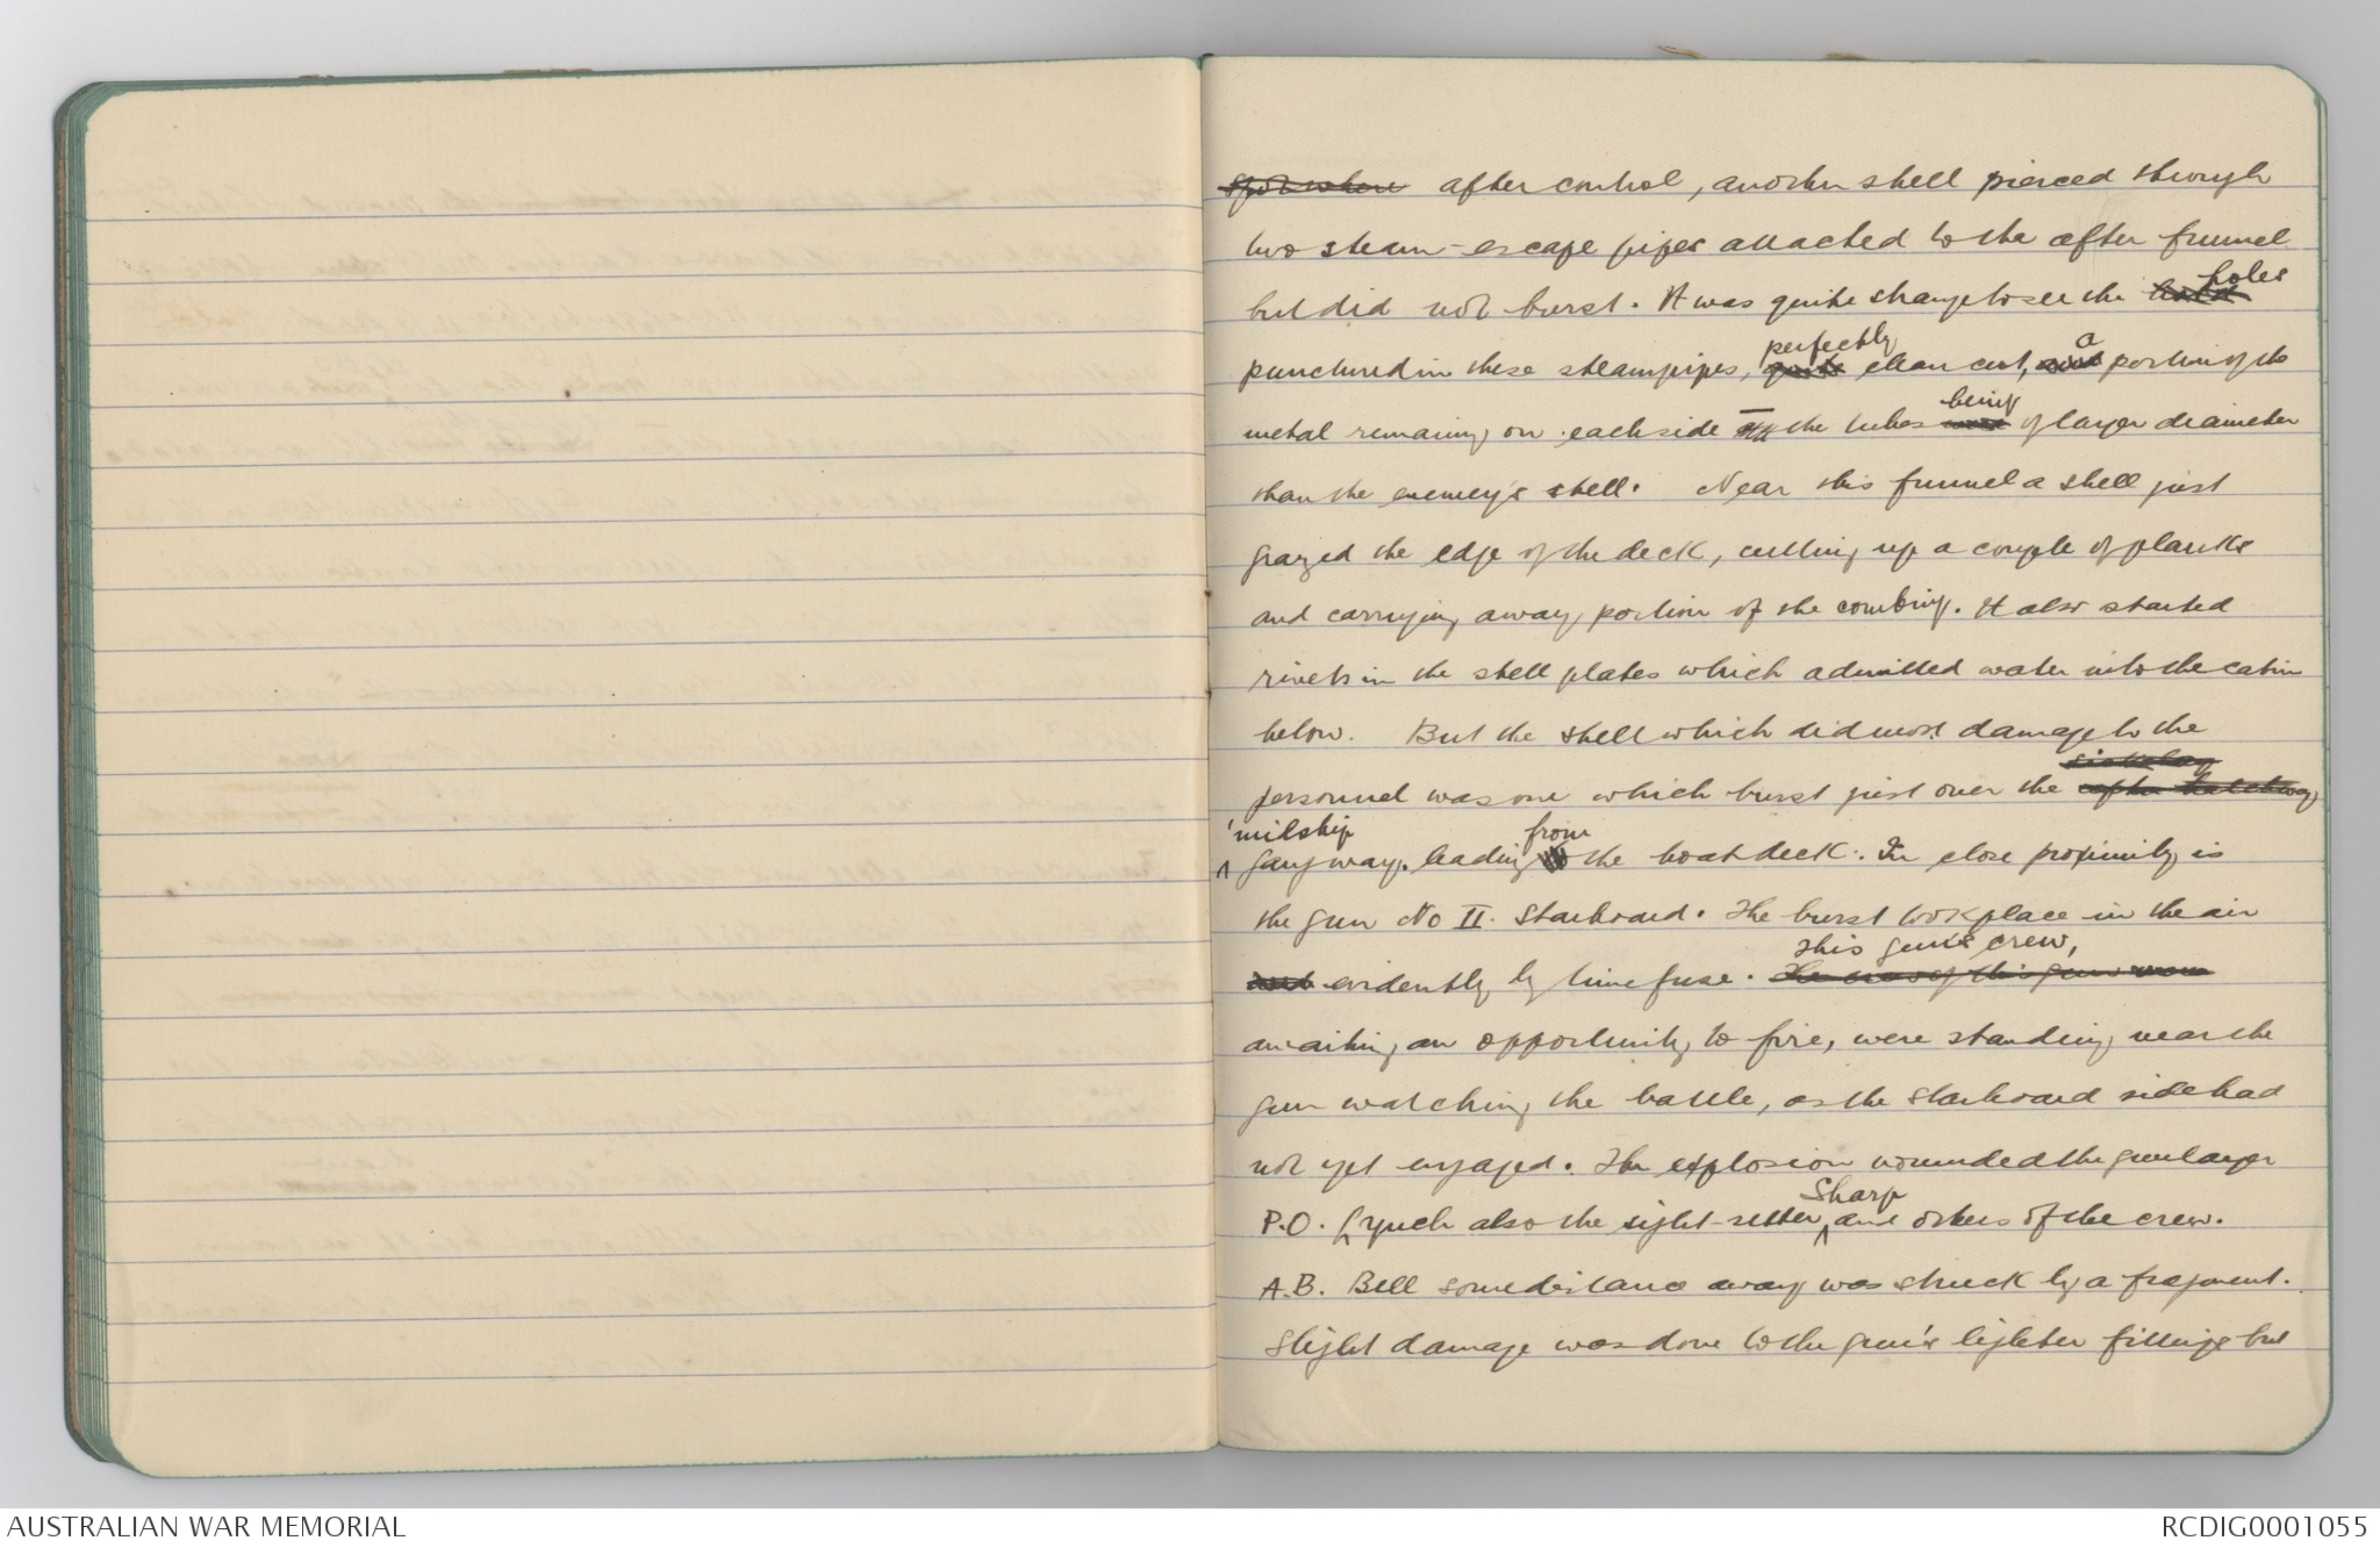 spot where after control, another shell pierced through
two steam-escape pipes attached to the after funnel
but did not burst. It was quite strange to see the holes
punctured in these steampipes, perfectly quite clean cut, a and portion of the
metal remaining on each side the tubes being were of larger diameter
than the enemey's shell. Near this funnel a shell just
grazed the edge of the deck, cutting up a couple of planks
and carrying away portion of the combing. It also started
rivets in the shell plates which admitted water into the cabin
below. But the shell which did most damage to the
sickbay
personnel was one which burst just over the after hatchway
'midship from
gangway. leading the boatdeck. In close proximity is
the gun No II. Starboard. The burst took place in the air
This gun's crew,
and evidently by time fuse. The crew of this gun were
awaiting an opportunity to fire, were standing near the
gun watching the battle, as the starboard side had
not yet engaged. The explosion wounded the gunlayer
P.O. Lynch also the sight-setter Sharp and others of the crew.
A.B. Bell some distance away was struck by a fragment.
Slight damage was done to the gun's lighter fittings but
AUSTRALIAN WAR MEMORIAL
RCDIG0001055